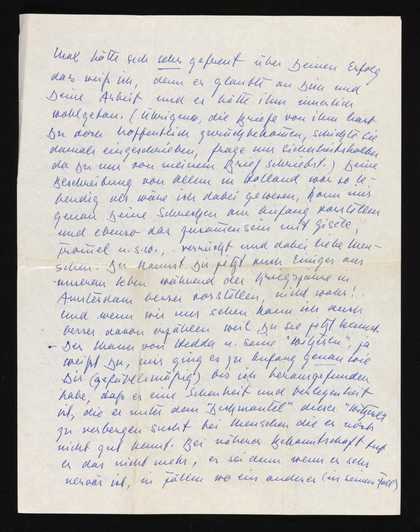 Max hätte sich sehr gefreut über Deinen Erfolg
das weiss ich, denn er glaubte an Dich und
Deine Arbeit und es hätte ihm innerlich
wohlgetan. (Übrigens, die Briefe von ihm hast
Du doch hoffentlich zurückbekommen, schickte sie
damals eingeschrieben, frage nur sicherheitshalber
da Du nur von meinem Brief schriebst.) Deine
Beschreibung von allem in Holland war so le-
bendig als wäre ich dabei gewesen, kann mir
genau Deine Schmerzen am Anfang vorstellen
und ebenso das zusammensein mit Gisele,
u.s.w., verrückt und dabei liebe Men-
schen. Du kannst Du jetzt auch einiges aus
unserem Leben während der Kriegsjahre in
Amsterdam besser vorstellen, nicht wahr!
und wenn wir uns sehen kann ich auch
besser davon erzählen weil Du sie jetzt kennst.
Der Mann von Hedda u. seine "Witzeleien", ja
weisst Du, mir ging es zu Anfang genau wie
Dir (gefühlsmässig) bis ich herausgefunden
habe, dass es eine Scheuheit und Verlegenheit
ist, die er unter dem "Deckmantel" dieser "Witzeleien"
zu verbergen sucht bei Menschen die er noch
nicht gut kennt. Bei näherer Bekanntschaft tut
er das nicht mehr, es sei denn wenn er sehr
nervös ist, in Fällen wo ein anderer (in seinem Fall)